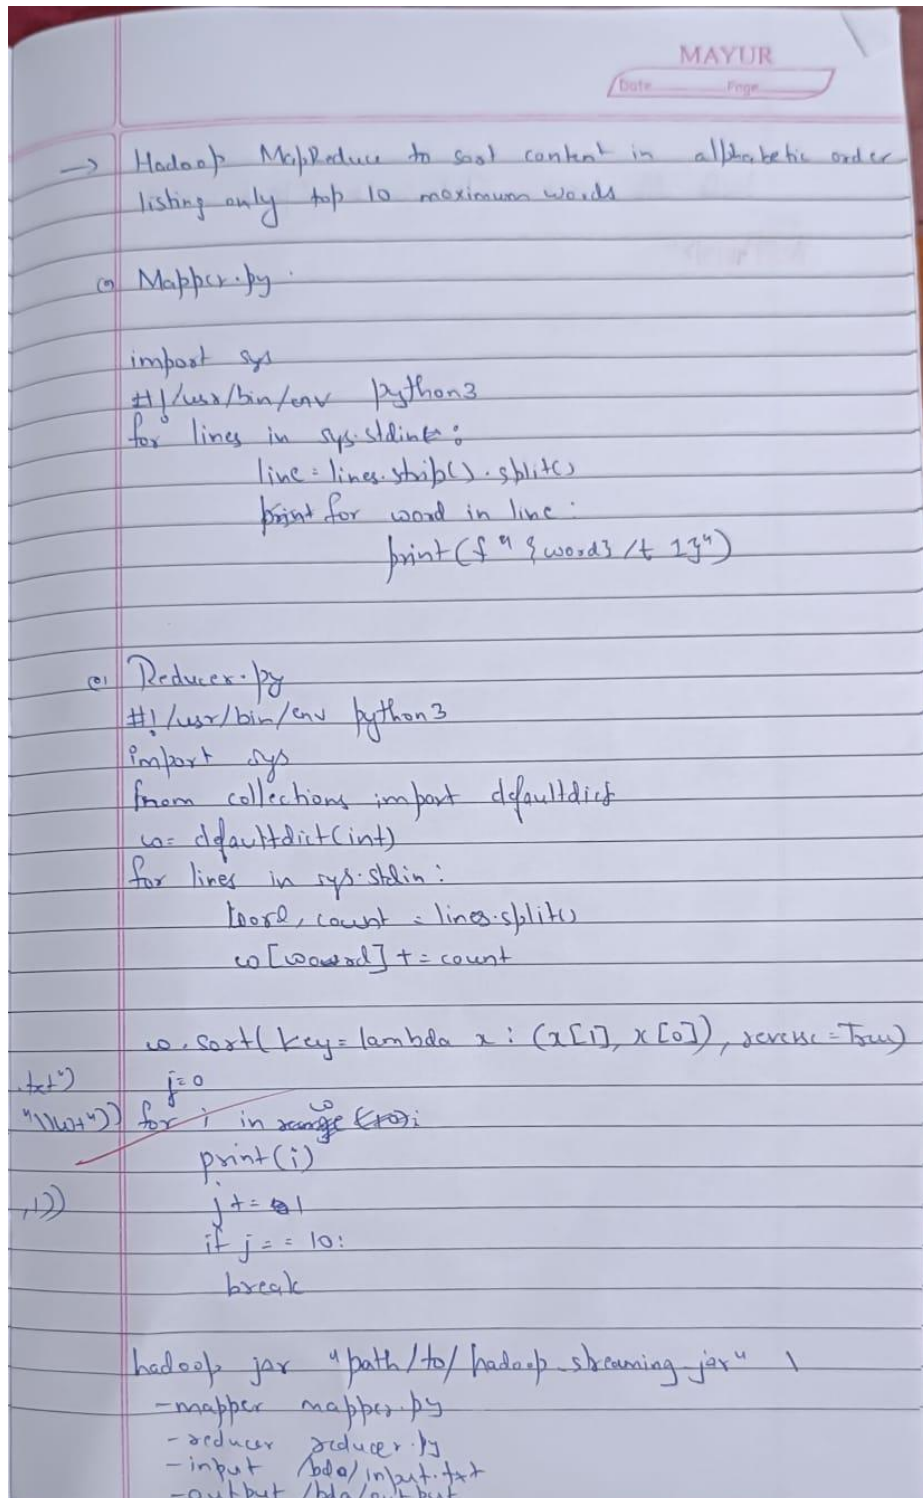 MAYUR
Date Page
-> Hadoop MapReduce to sort content in alphabetic order
listing only top 10 maximum words
Mapper.py
import sys
#!/usr/bin/env python3
for lines in sys.stdin:
line = lines.strip().split()
for word in line:
print(f "{word} /t 1}")
Reducer.py
#!/usr/bin/env python3
import sys
from collections import defaultdict
w = defaultdict(int)
for lines in sys.stdin:
word, count = lines.split()
w[word] += count
w.sort(key = lambda x : (x[1], x[0]), reverse = True)
.txt")
j=0
"\\w+"))
for i in w:
print(i)
,1))
j += 1
if j == 10:
break
hadoop jar "path/to/hadoop-streaming-jar" \
-mapper mapper.py
-reducer reducer.py
-input /bda/input.txt
-output /bda/output